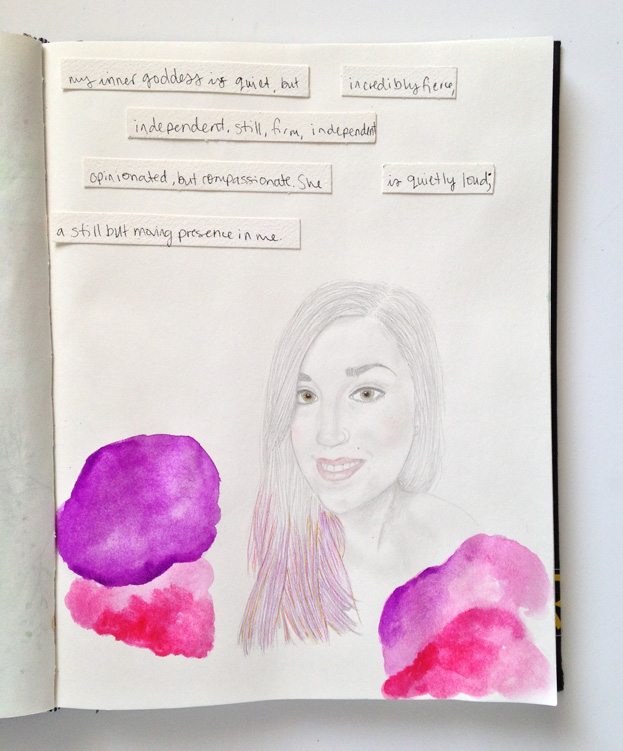 my inner goddess is quiet, but incredibly fierce,
independent. still, firm, independent
opinionated, but compassionate. She is quietly loud;
a still but moving presence in me.